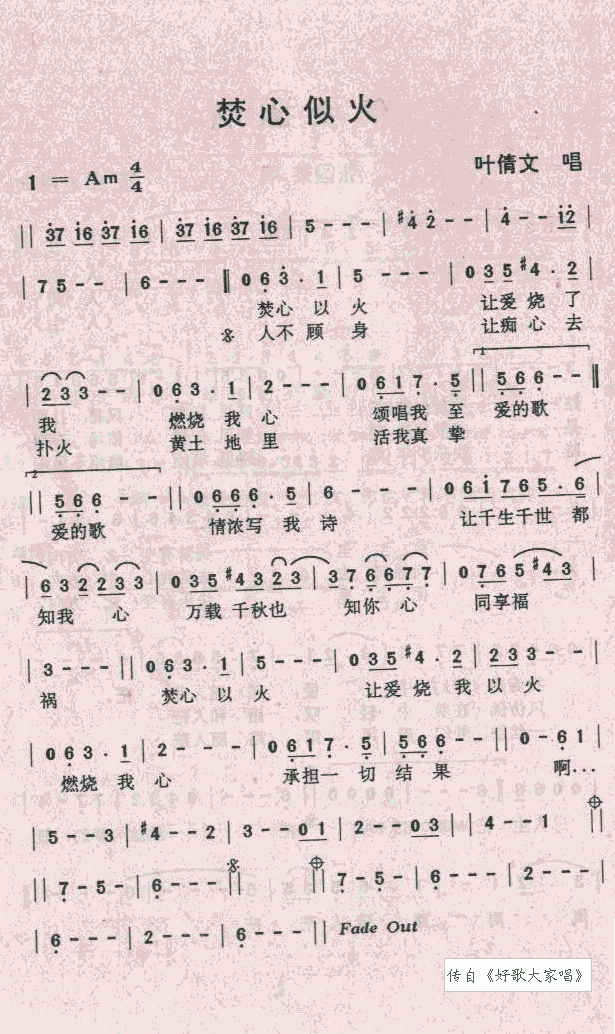 焚心似火
1 = Am 4/4
叶倩文 唱
|| 37 i6 37 i6 | 37 i6 37 i6 | 5 - - - | #4 2 - - | 4 - - i2 |
| 7 5 - - | 6 - - - || 0 6 3 · 1 | 5 - - - | 0 3 5 #4 · 2 |
焚心 以 火 让爱 烧 了
人不 顾 身 让痴 心 去
1
| 2 3 3 - - | 0 6 3 · 1 | 2 - - - | 0 6 1 7 · 5 || 5 6 6 - - ||
我 燃烧 我 心 颂唱我 至 爱的歌
扑火 黄土 地 里 活我真 挚
2
|| 5 6 6 - - || 0 6 6 6 · 5 | 6 - - - | 0 6 i 7 6 5 · 6 |
爱的歌 情浓写 我 诗 让千生千世 都
| 6 3 2 2 3 3 | 0 3 5 #4 3 2 3 | 3 7 6 6 7 7 | 0 7 6 5 #4 3 |
知我 心 万载 千秋也 知你 心 同享福
| 3 - - - || 0 6 3 · 1 | 5 - - - | 0 3 5 #4 · 2 | 2 3 3 - - |
祸 焚心 以 火 让爱 烧 我 以 火
| 0 6 3 · 1 | 2 - - - | 0 6 1 7 · 5 | 5 6 6 - - | 0 - 6 1 |
燃烧 我 心 承担一 切 结 果 啊...
| 5 - - 3 | #4 - - 2 | 3 - - 0 1 | 2 - - 0 3 | 4 - - 1 ||
|| 7 - 5 - | 6 - - - || || 7 - 5 - | 6 - - - | 2 - - - |
| 6 - - - | 2 - - - | 6 - - - || Fade Out
传自《好歌大家唱》